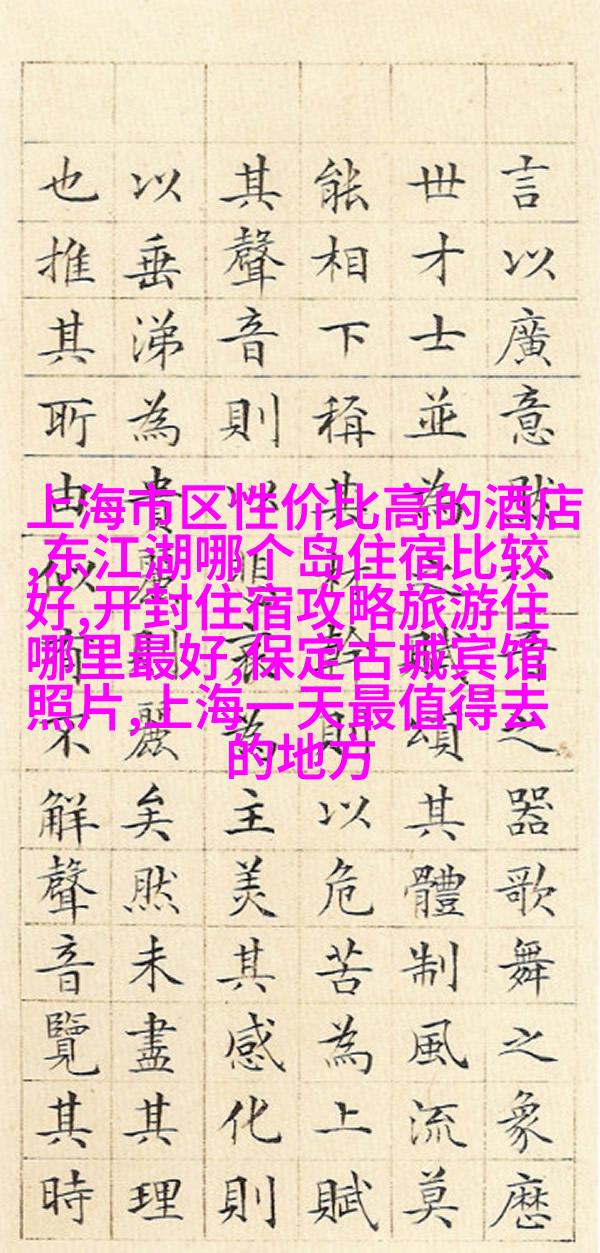 上海市区性价比高的酒店
,东江湖哪个岛住宿比较
好,开封住宿攻略旅游住
哪里最好,保定古城宾馆
照片,上海一天最值得去
的地方
言以廣意然音之器歌舞之象歷
世才士並為之賦頌其體制風流莫
能相下稱其材幹則以危苦為上賦
其聲音則以悲哀為主美其感化則
以垂涕為貴麗則麗矣然未盡其理
也推其所由似不解聲音覽其時